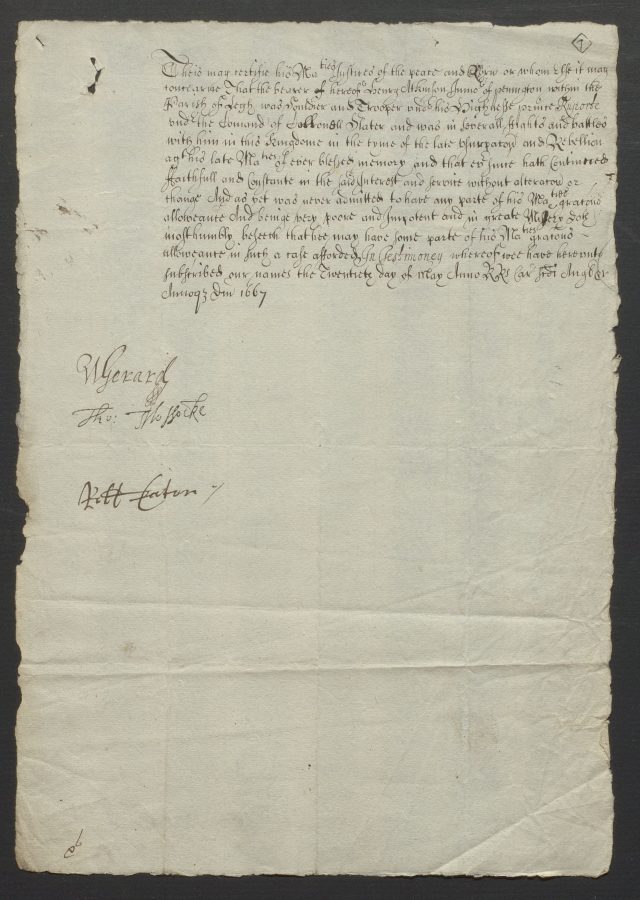 7
Theis may certifie his Ma ties Justices of the peace and or whom else it may
concerne That the bearer hereof Henry Atkinson Junio r of penington within the
Parish of Leigh was Souldier and Trooper und r his Highnesse prince Ruperte
und r the Comand of Collonell Slater and was in severall fights and battles
with him in this Kingdome in the tyme of the late Usurpacōn and Rebellion
ag t his late Ma ties of ever blessed memory and that ev r since hath Continued
Faithfull and Constante in the said Interest and service without alteracōn or
change And as yet was never admitted to have any part of his Ma ties gratious
allowance And beinge very poore and Impotent and in greate Misery Doth
most humbly beseech that hee may have some parte of his Ma ties gratious
allowance in such a case afforded In Testimoney whereof wee have hereunto
subscribed our names the Twentieth day of May Anno RRs Car Angl
Annoq3 Dm 1667
WGerard
Tho:
Eaton